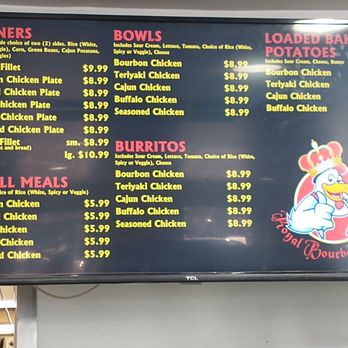 NERS
de choice of two (2) sides. Rice (White,
ggie), Corn, Green Beans, Cajun Potatoes,
Fillet $9.99
n Chicken Plate $8.99
i Chicken Plate $8.99
Chicken Plate $8.99
Chicken Plate $8.99
d Chicken Plate $8.99
Fillet sm. $8.99
and bread) lg. $10.99
LL MEALS
e of Rice (White, Spicy or Veggie)
n Chicken $5.99
Chicken $5.99
hicken $5.99
Chicken $5.99
d Chicken $5.99
BOWLS
Includes Sour Cream, Lettuce, Tomato, Choice of Rice (White,
Spicy or Veggie), Cheese
Bourbon Chicken $8.99
Teriyaki Chicken $8.99
Cajun Chicken $8.99
Buffalo Chicken $8.99
Seasoned Chicken $8.99
BURRITOS
Includes Sour Cream, Lettuce, Tomato, Choice of Rice (White,
Spicy or Veggie), Cheese
Bourbon Chicken $8.99
Teriyaki Chicken $8.99
Cajun Chicken $8.99
Buffalo Chicken $8.99
Seasoned Chicken $8.99
LOADED BAK
POTATOES
Includes Sour Cream, Cheese, Butter
Bourbon Chicken
Teriyaki Chicken
Cajun Chicken
Buffalo Chicken
Royal Bourb
TCL